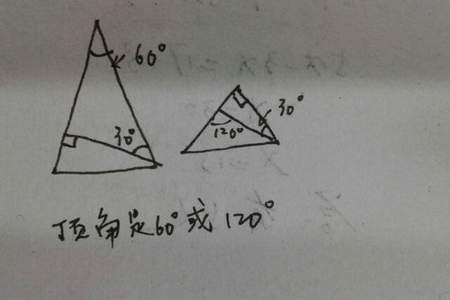 60°
30°
30°
120°
顶角是60°或120°